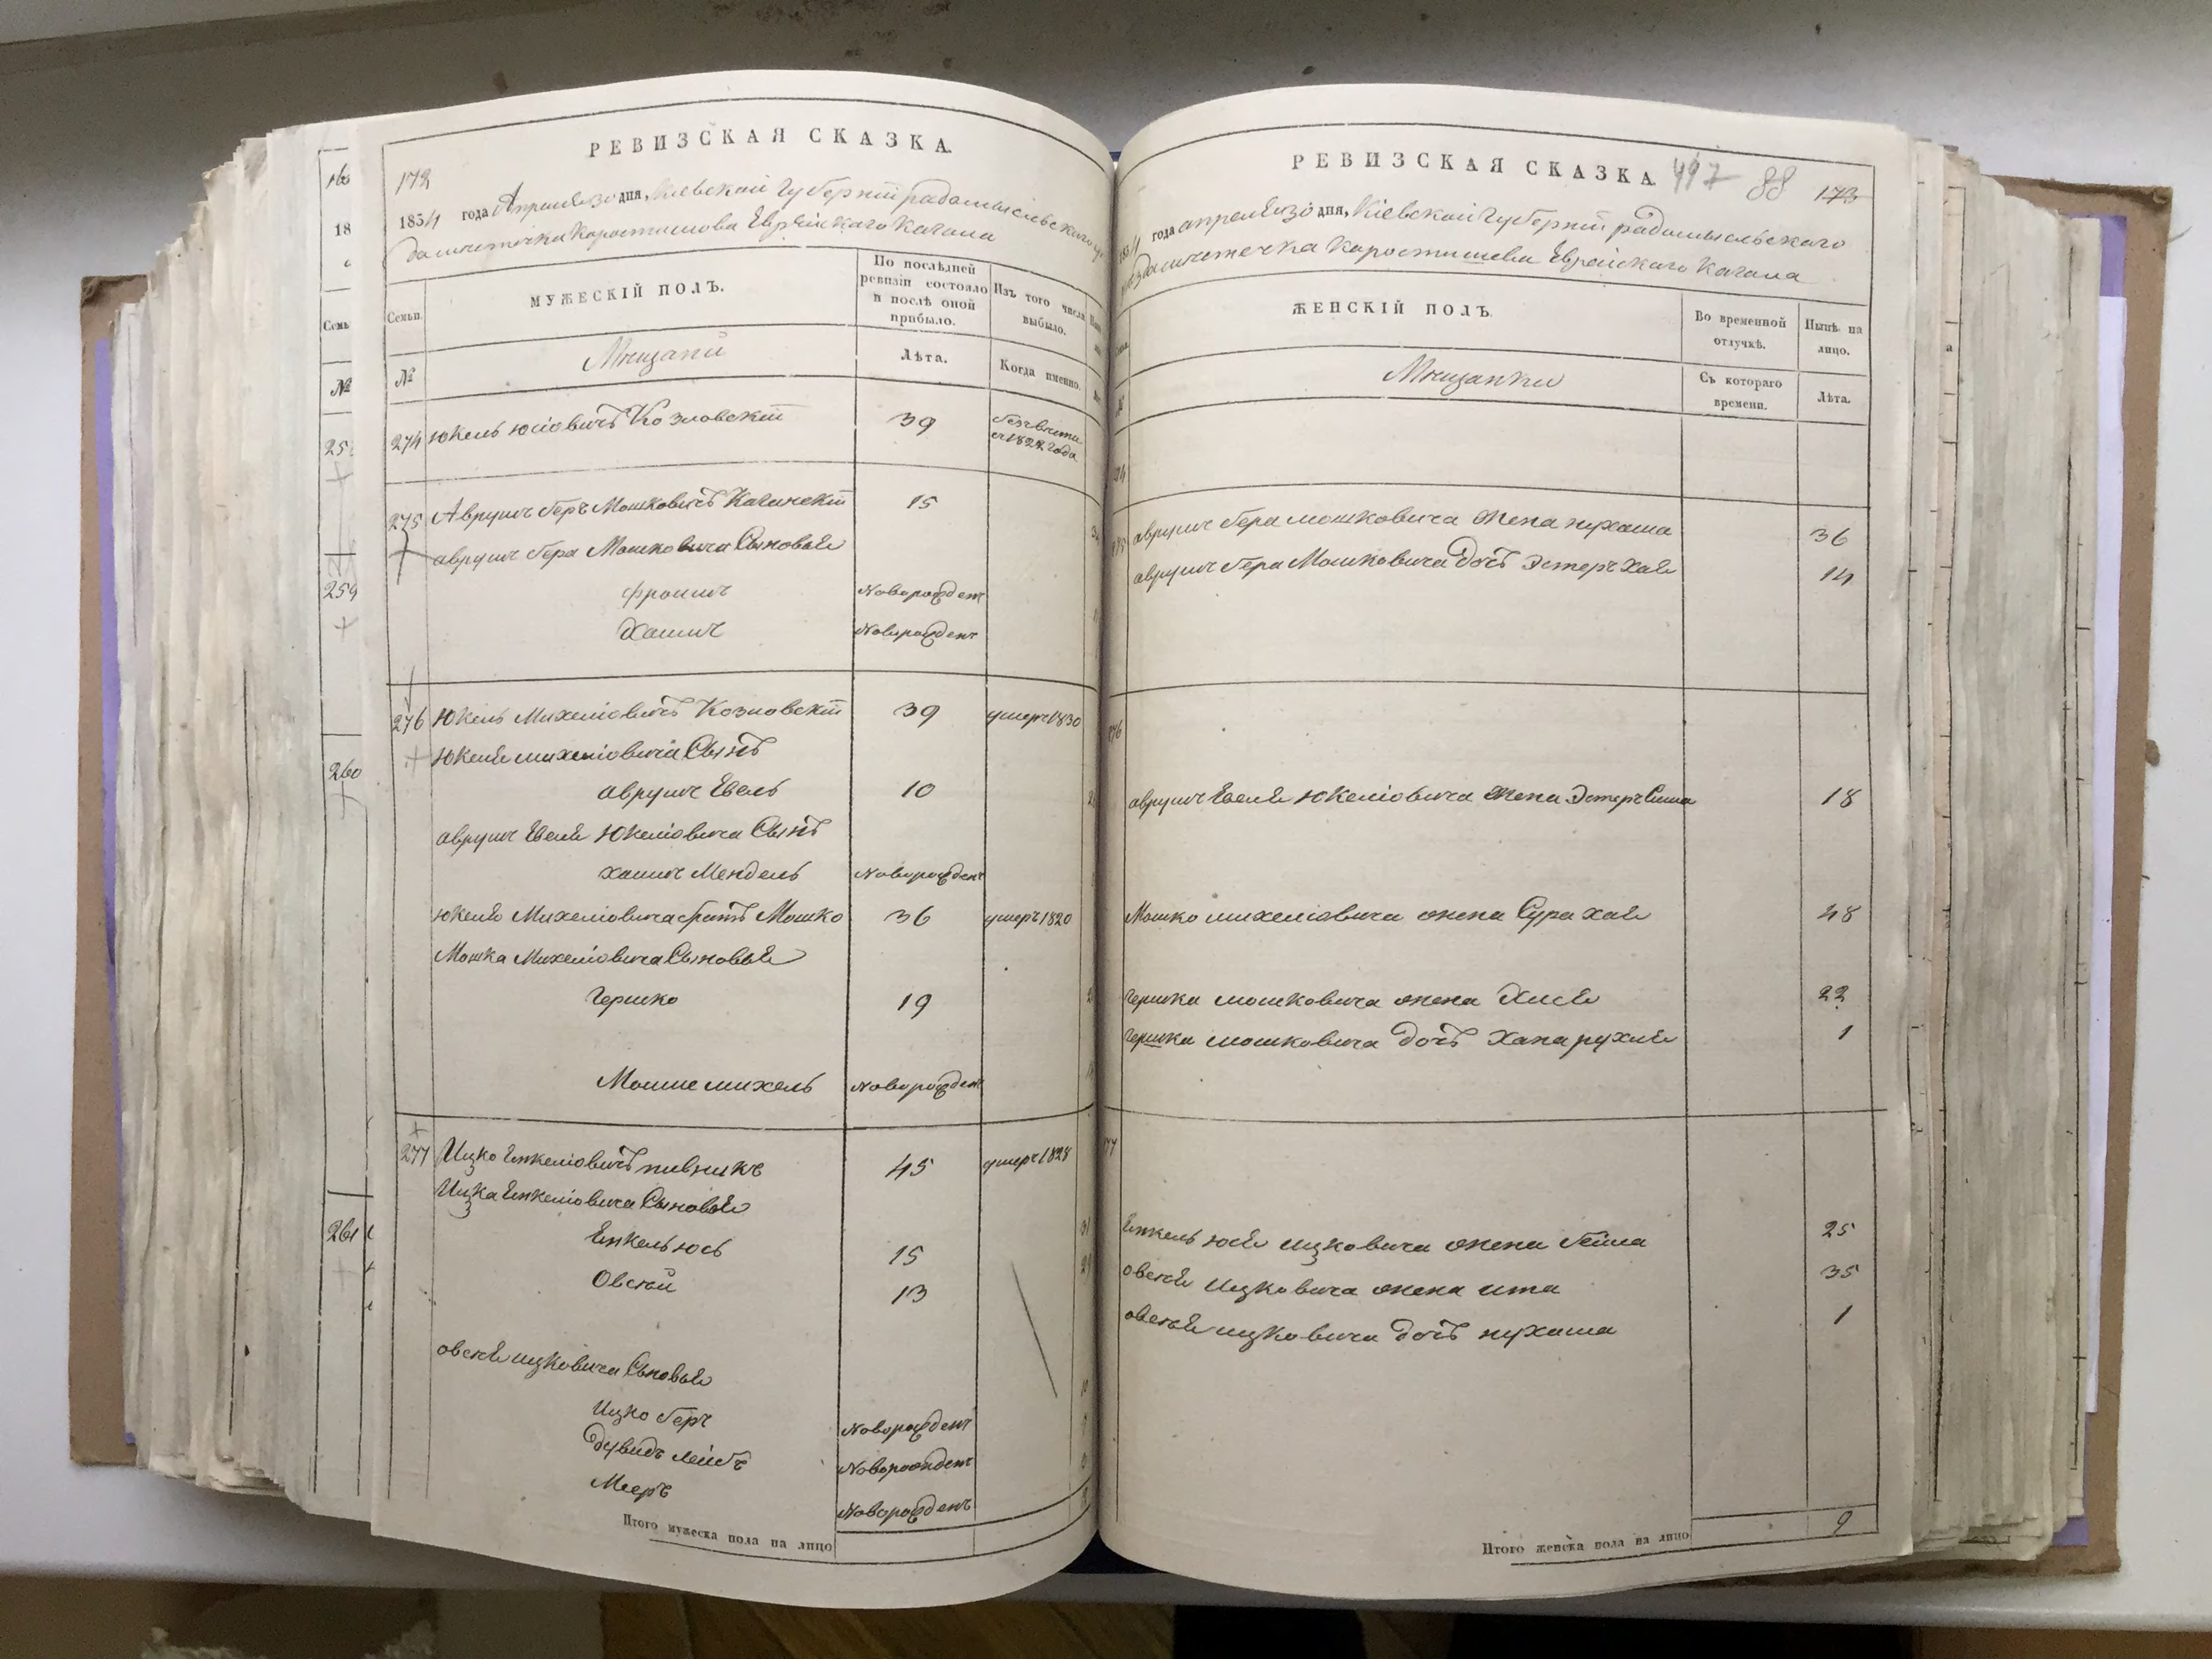 160
18
Семь
№
259
260
261
РЕВИЗСКАЯ СКАЗКА.
172
1834 года Апреля 30 дня, Кіевской Губерніи радомысльского
да местечка Коростишова Еврейскаго Кагала
Семьи.
МУЖЕСКІЙ ПОЛЪ.
По послѣдней ревизіи состояло и послѣ оной прибыло.
Изъ того числа выбыло.
№
Мищани
Лѣта.
Когда именно.
274 Юкель Юсіовичъ Козловскій 39
1828 года
275 Аврумъ беръ Мошковичъ Каганскій 15
аврумъ бера Мошковича Сыновья
фроимъ Новорожденъ
Хаимъ Новорожденъ
276 Юкель Михеліовичъ Козловскій 39 умеръ 1830
Юкеля михеліовича Сынъ
аврумъ Евель 10
аврумъ Евеля Юкеліовича Сынъ
хаимъ Мендель Новорожденъ
Юкеля Михеліовича братъ Мошко 36 умеръ 1820
Мошка Михеліовича Сыновья
Гершко 19
Мошие михель Новорожденъ
277 Ицко Енкеліовичъ пивникъ 45 умеръ 1828
Ицка Енкеліовича Сыновья
Енкель юсь 15
Овсей 13
овсея ицковича Сыновья
Ицко беръ Новорожденъ
дувидъ лейбъ Новорожденъ
Мееръ Новорожденъ
Итого мужеска пола на лицо
РЕВИЗСКАЯ СКАЗКА.
497 88 173
1834 года апреля 30 дня, Кіевской Губерніи радомысльского
уезда местечка Коростишева Еврейскаго Кагала
ЖЕНСКІЙ ПОЛЪ.
Во временной отлучкѣ.
Нынѣ на лицо.
Мищанки
Съ котораго времени.
Лѣта.
аврумъ бера мошковича жена нухама 36
аврумъ бера Мошковича дочь Эстеръ Хая 14
аврумъ Евеля Юкеліовича жена Эстеръ Сима 18
Мошко михеліовича жена Сура хая 48
Гершки мошковича жена 22
Гершки мошковича дочь Хана рухля 1
Енкель юся ицковича жена бейла 25
овсея ицковича жена ита 35
овсея ицковича дочь нухама 1
Итого женска пола на лицо 9